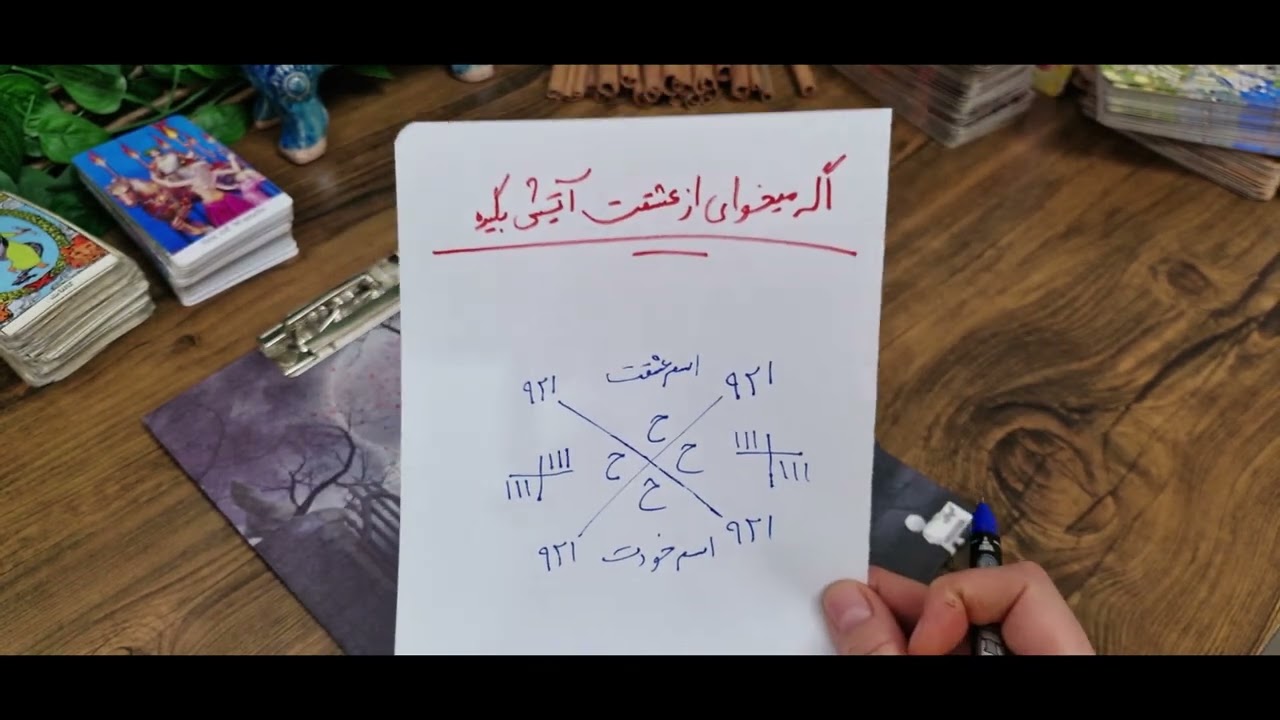 اگه میخوای از عشقت آتیشی بگیره
اسم عشقت
۹۲۱ ۹۲۱
ح
ح ح
ح
۱۱۱ ۱۱۱
۱۱۱ ۱۱۱
۹۲۱ اسم خودت ۹۲۱